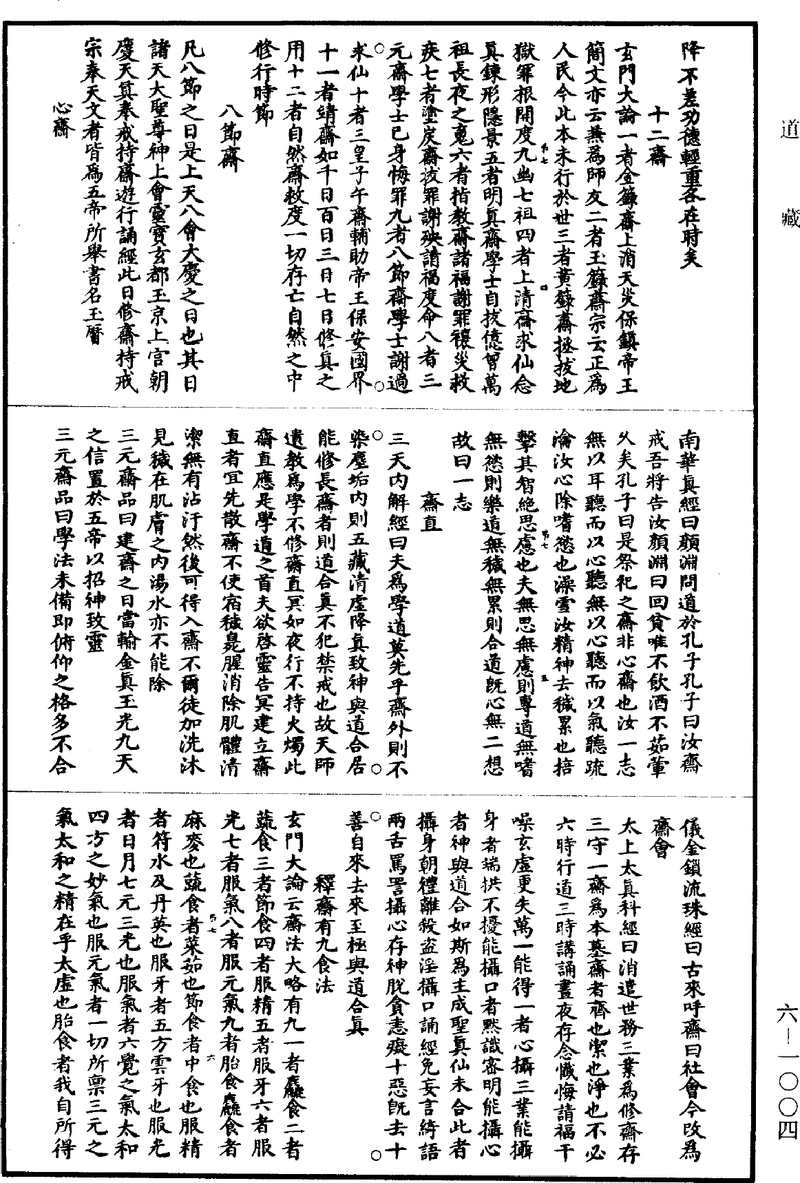 道藏
降不差功德輕重各在時矣
十二齋
玄門大論一者金籙齋上消天災保鎮帝王
簡文亦云兼為師友二者玉籙齋宗云正為
人民今此本未行於世三者黃籙齋拯拔地
獄罪根開度九幽七祖四者上清齋求仙念
真鍊形隱景五者明真齋學士自拔億曾萬
祖長夜之魂六者指教齋諸福謝罪禳災救
疾七者塗炭齋拔罪謝殃請福度命八者三
元齋學士己身悔罪九者八節齋學士謝過
求仙十者三皇子午齋輔助帝王保安國界
十一者靖齋如千日百日三日七日修真之
用十二者自然齋救度一切存亡自然之中
修行時節
八節齋
凡八節之日是上天八會大慶之日也其日
諸天大聖尊神上會靈寶玄都玉京上宮朝
慶天真奉戒持齋遊行誦經此日修齋持戒
宗奉天文者皆為五帝所舉書名玉曆
心齋
南華真經曰顏淵問道於孔子孔子曰汝齋
戒吾將告汝顏淵曰回貧唯不飲酒不茹葷
久矣孔子曰是祭祀之齋非心齋也汝一志
無以耳聽而以心聽無以心聽而以氣聽疏
瀹汝心除嗜慾也澡雪汝精神去穢累也掊
擊其智絕思慮也夫無思無慮則專道無嗜
無慾則樂道無穢無累則合道既心無二想
故曰一志
齋直
三天內解經曰夫為學道莫先乎齋外則不
染塵垢內則五藏清虛降真致神與道合居
能修長齋者則道合真不犯禁戒也故天師
遺教為學不修齋直冥如夜行不持火燭此
齋直應是學道之首夫欲啓靈告冥建立齋
直者宜先散齋不使宿穢臭腥消除肌體清
潔無有沾汙然後可得入齋不爾徒加洗沐
見穢在肌膚之內湯水亦不能除
三元齋品曰建齋之日當輸金真玉光九天
之信置於五帝以招神致靈
三元齋品曰學法未備即俯仰之格多不合
儀金鎖流珠經曰古來呼齋曰社會今改為
齋會
太上太真科經曰消遣世務三業為修齋存
三守一齋為本基齋者齊也潔也淨也不必
六時行道三時講誦晝夜存念懺悔請福干
噪玄虛更失萬一能得一者心攝三業能攝
身者端拱不擾能攝口者默識密明能攝心
者神與道合如斯為主成聖真仙未合此者
攝身朝禮離殺盜淫攝口誦經免妄言綺語
兩舌罵詈攝心存神脫貪恚癡十惡既去十
善自來去來至極與道合真
釋齋有九食法
玄門大論云齋法大略有九一者麤食二者
蔬食三者節食四者服精五者服牙六者服
光七者服氣八者服元氣九者胎食麤食者
麻麥也蔬食者菜茹也節食者中食也服精
者符水及丹英也服牙者五方雲牙也服光
者日月七元三光也服氣者六覺之氣太和
四方之妙氣也服元氣者一切所稟三元之
氣太和之精在乎太虛也胎食者我自所得
六—一〇〇四